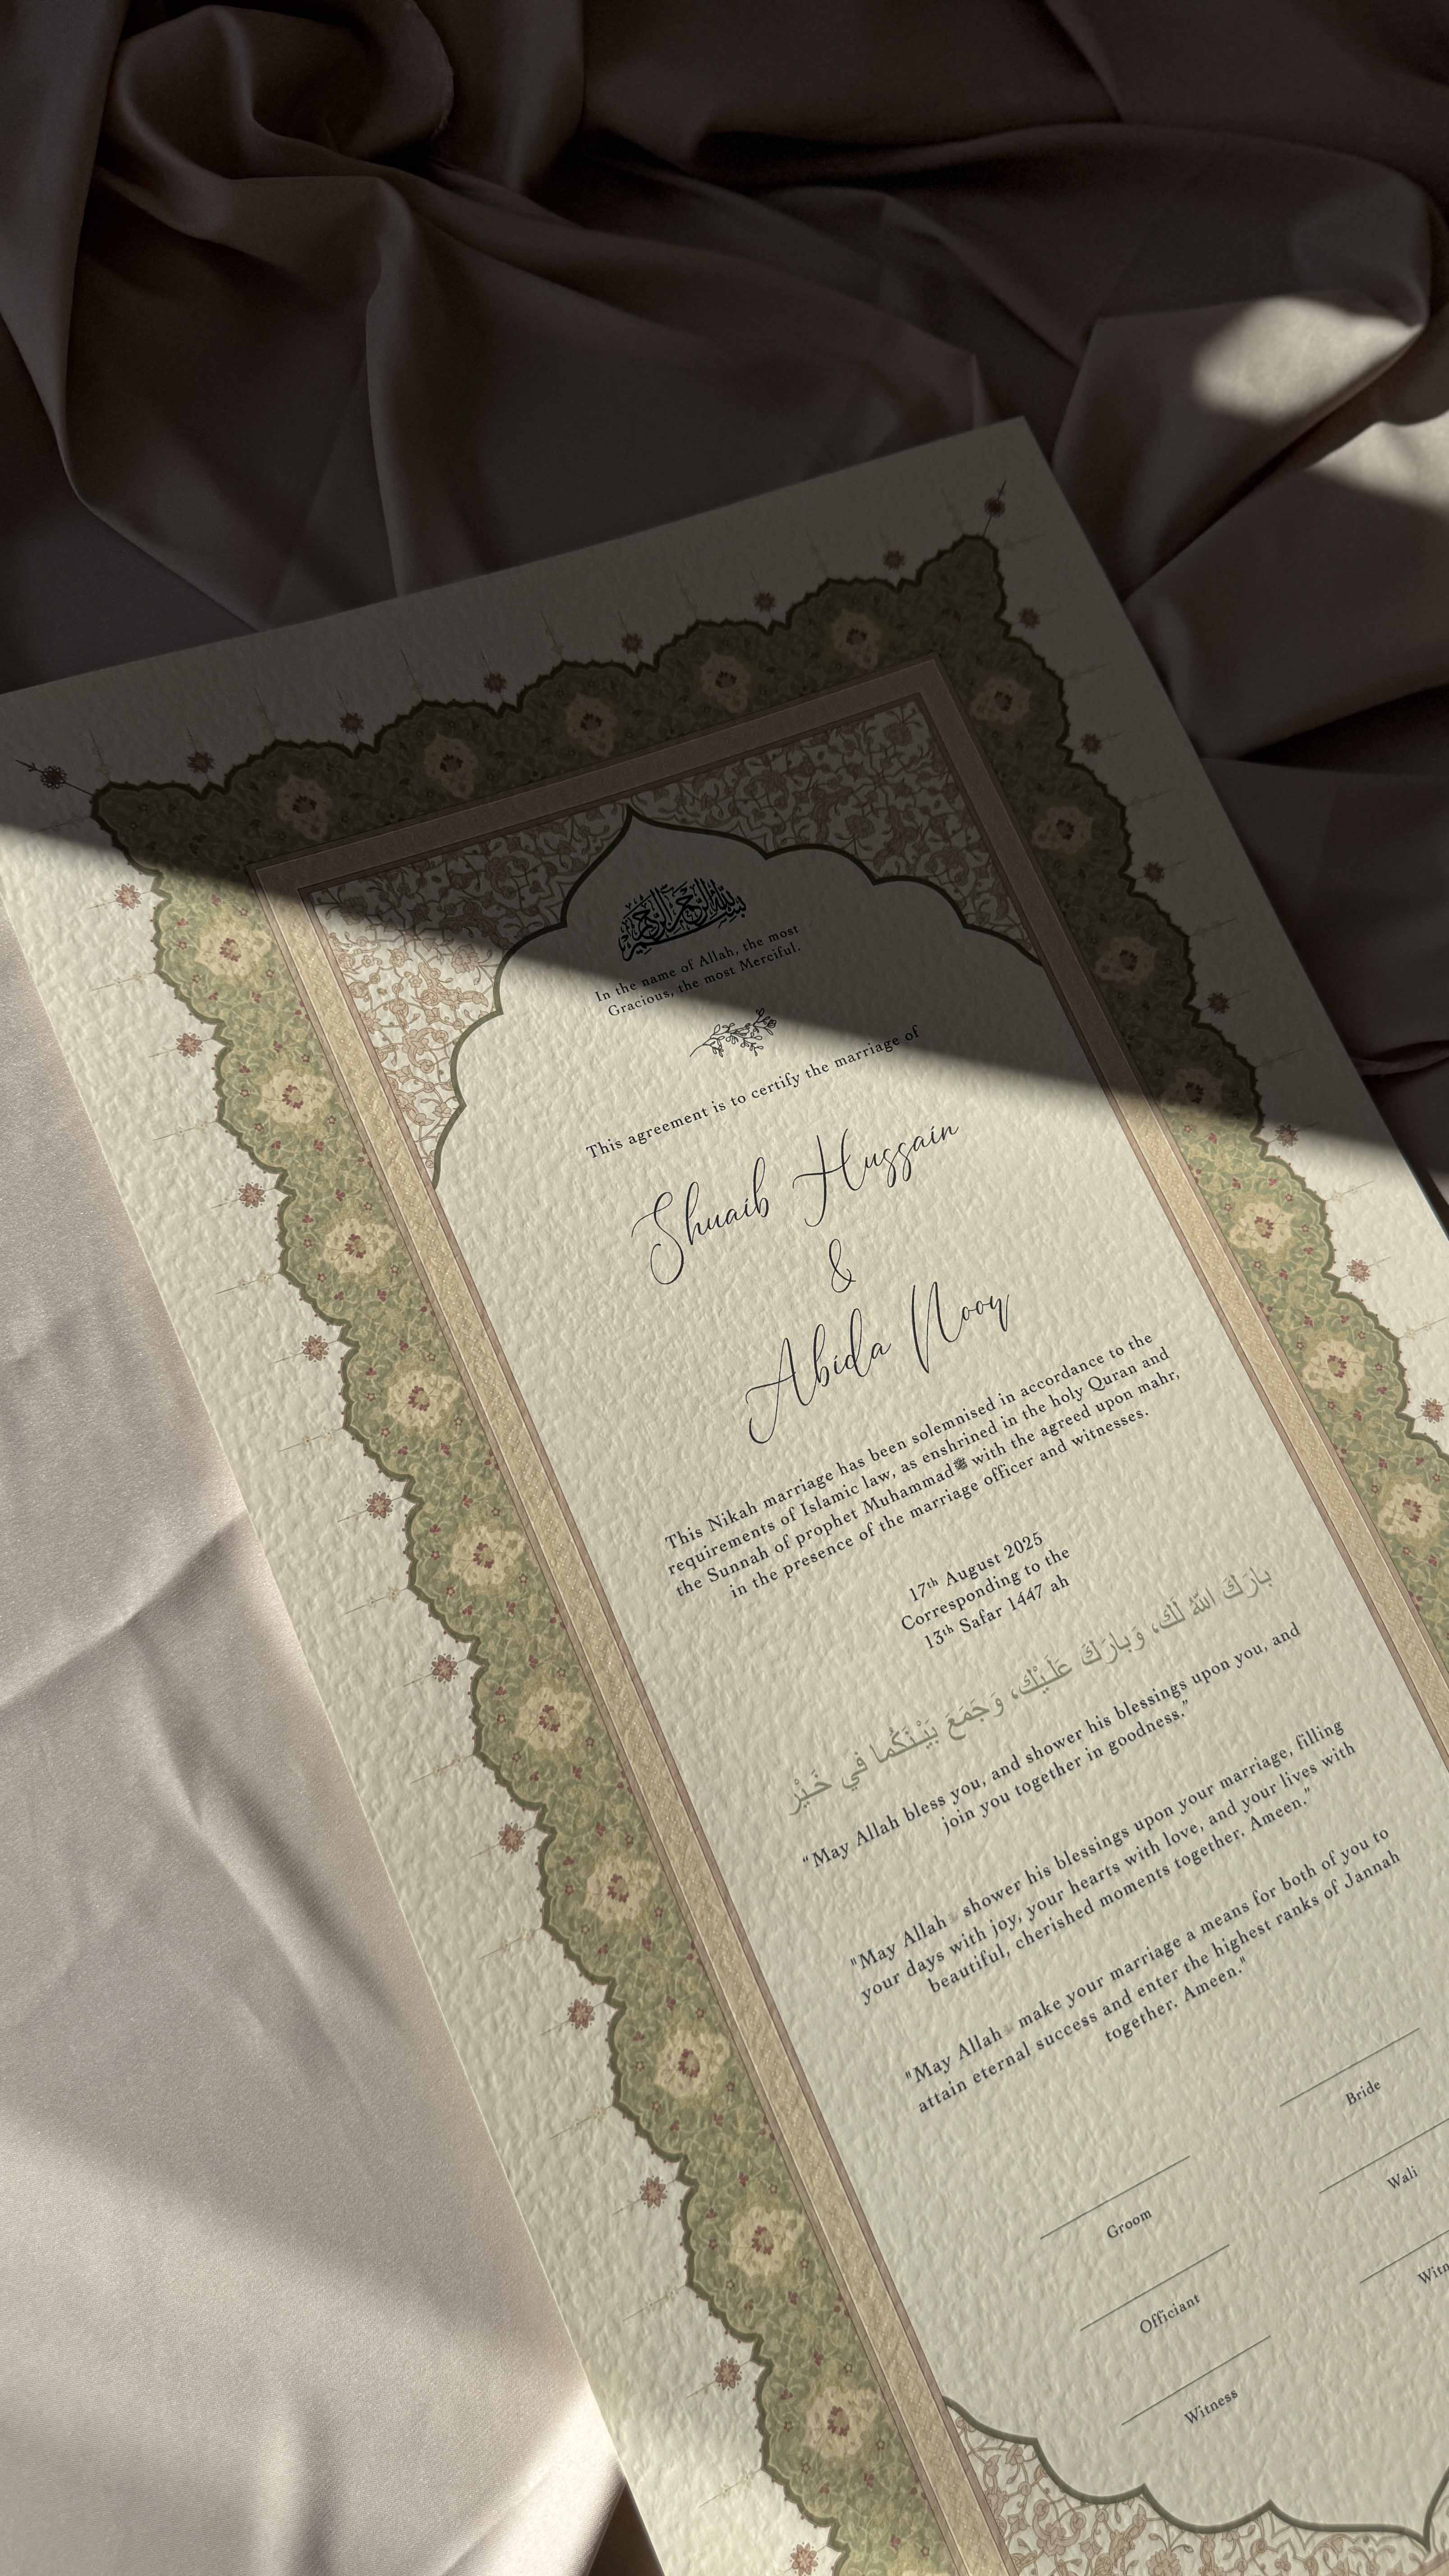 بسم الله الرحمن الرحيم
In the name of Allah, the most
Gracious, the most Merciful.
This agreement is to certify the marriage of
Shuaib Hussain
&
Abida Noor
This Nikah marriage has been solemnised in accordance to the
requirements of Islamic law, as enshrined in the holy Quran and
the Sunnah of prophet Muhammadﷺ with the agreed upon mahr,
in the presence of the marriage officer and witnesses.
17th August 2025
Corresponding to the
13th Safar 1447 ah
بارَكَ اللهُ لَك، وَبارَكَ عَلَيْك، وَجَمَعَ بَيْنَكُما في خَيْر
“May Allah bless you, and shower his blessings upon you, and
join you together in goodness.”
"May Allah shower his blessings upon your marriage, filling
your days with joy, your hearts with love, and your lives with
beautiful, cherished moments together. Ameen."
"May Allah make your marriage a means for both of you to
attain eternal success and enter the highest ranks of Jannah
together. Ameen."
Bride
Groom
Wali
Officiant
Witn
Witness